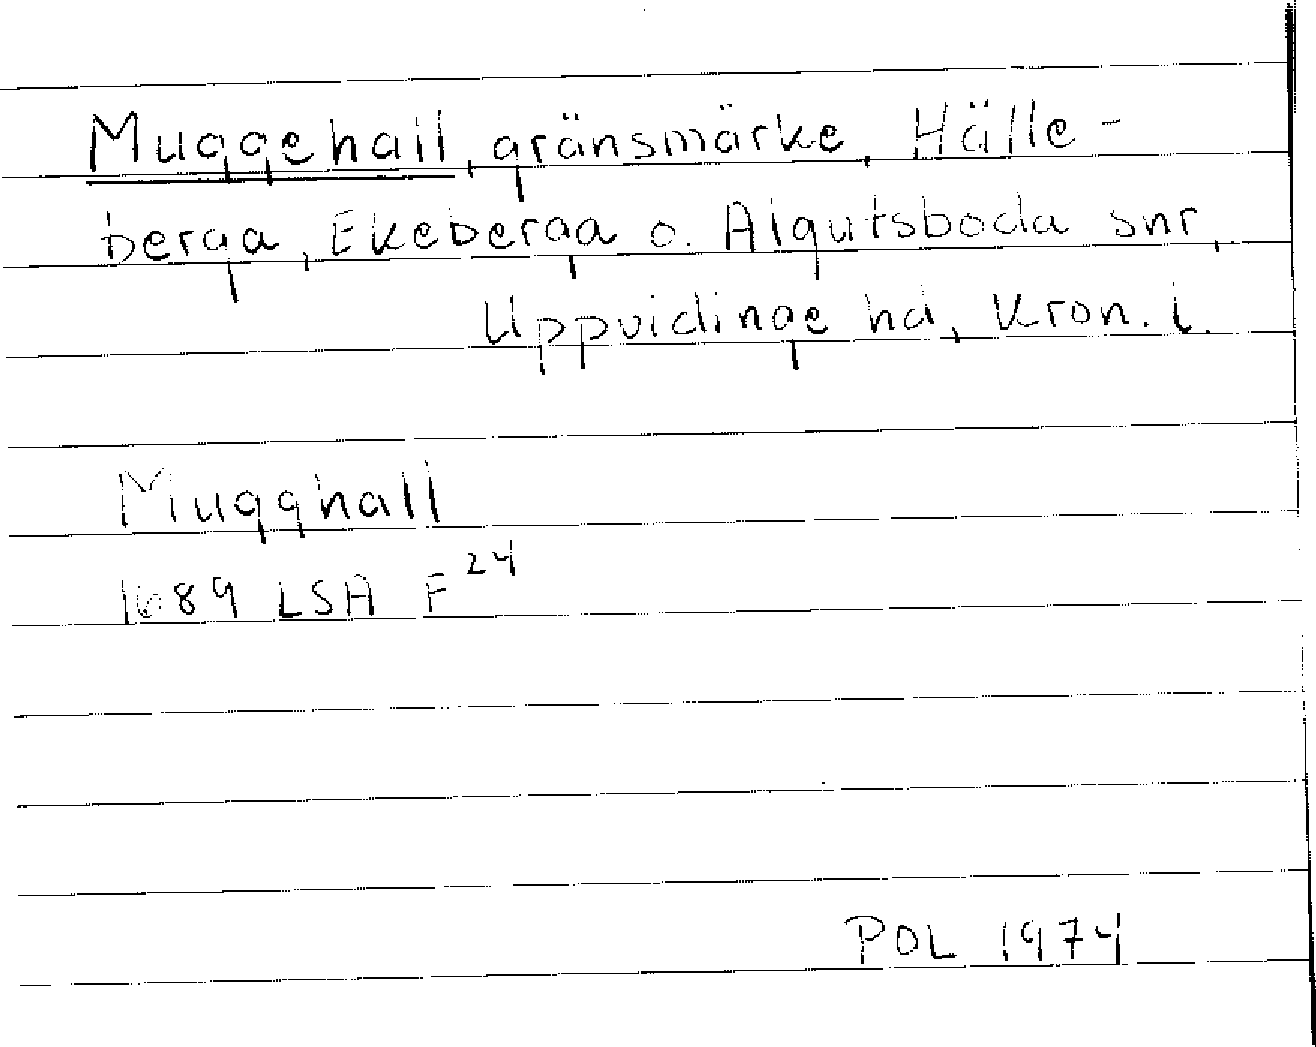 Muggehall, gränsmärke, Hälle-
berga, Ekeberga o. Algutsboda snr,
Uppvidinge hd, Kron. l.
Mugghall
1689 LSA F 24
POL 1974